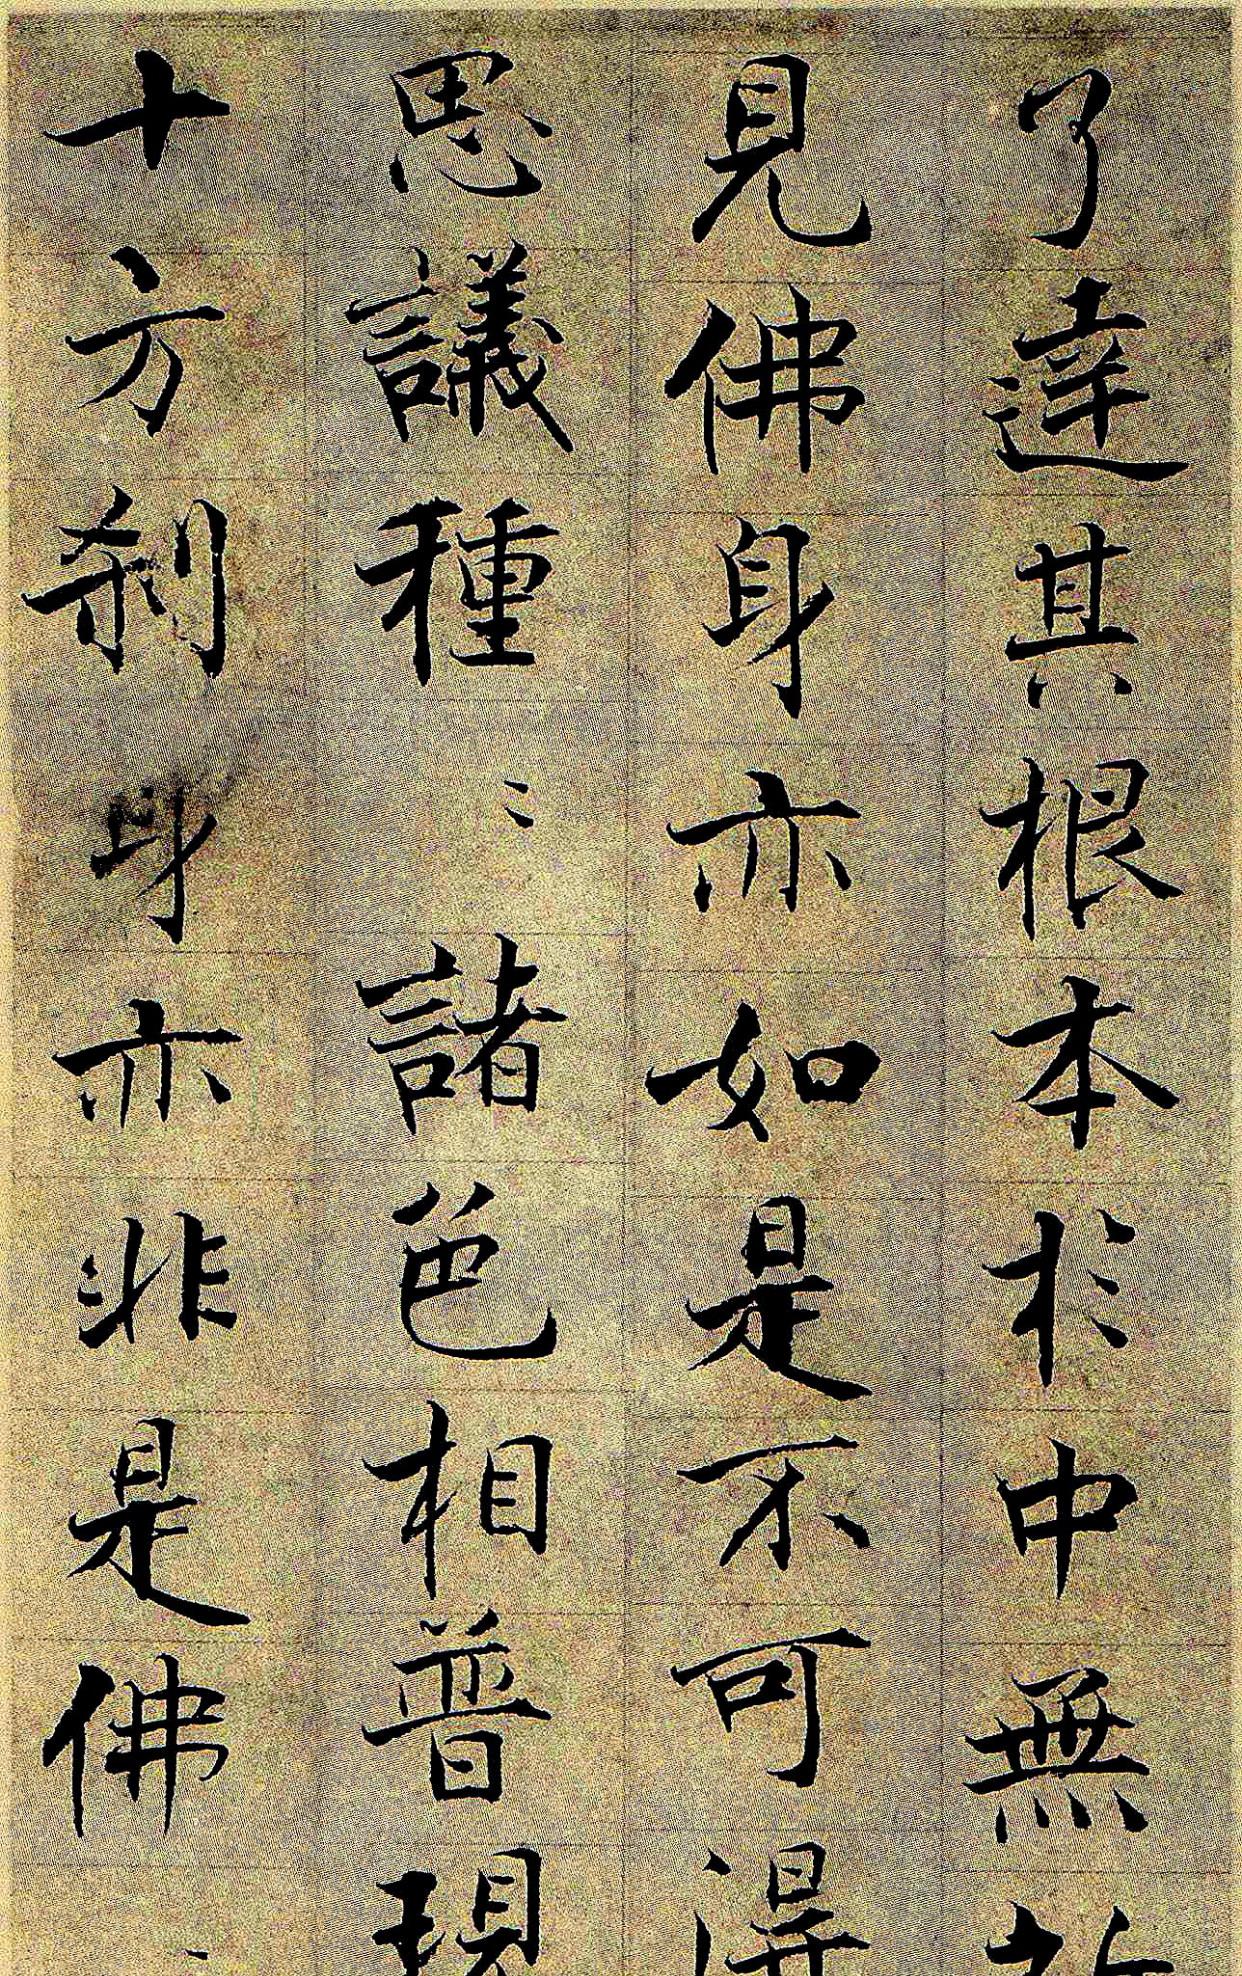 了達其根本於中無
見佛身亦如是不可得
思議種〻諸色相普現
十方刹身亦非是佛〻